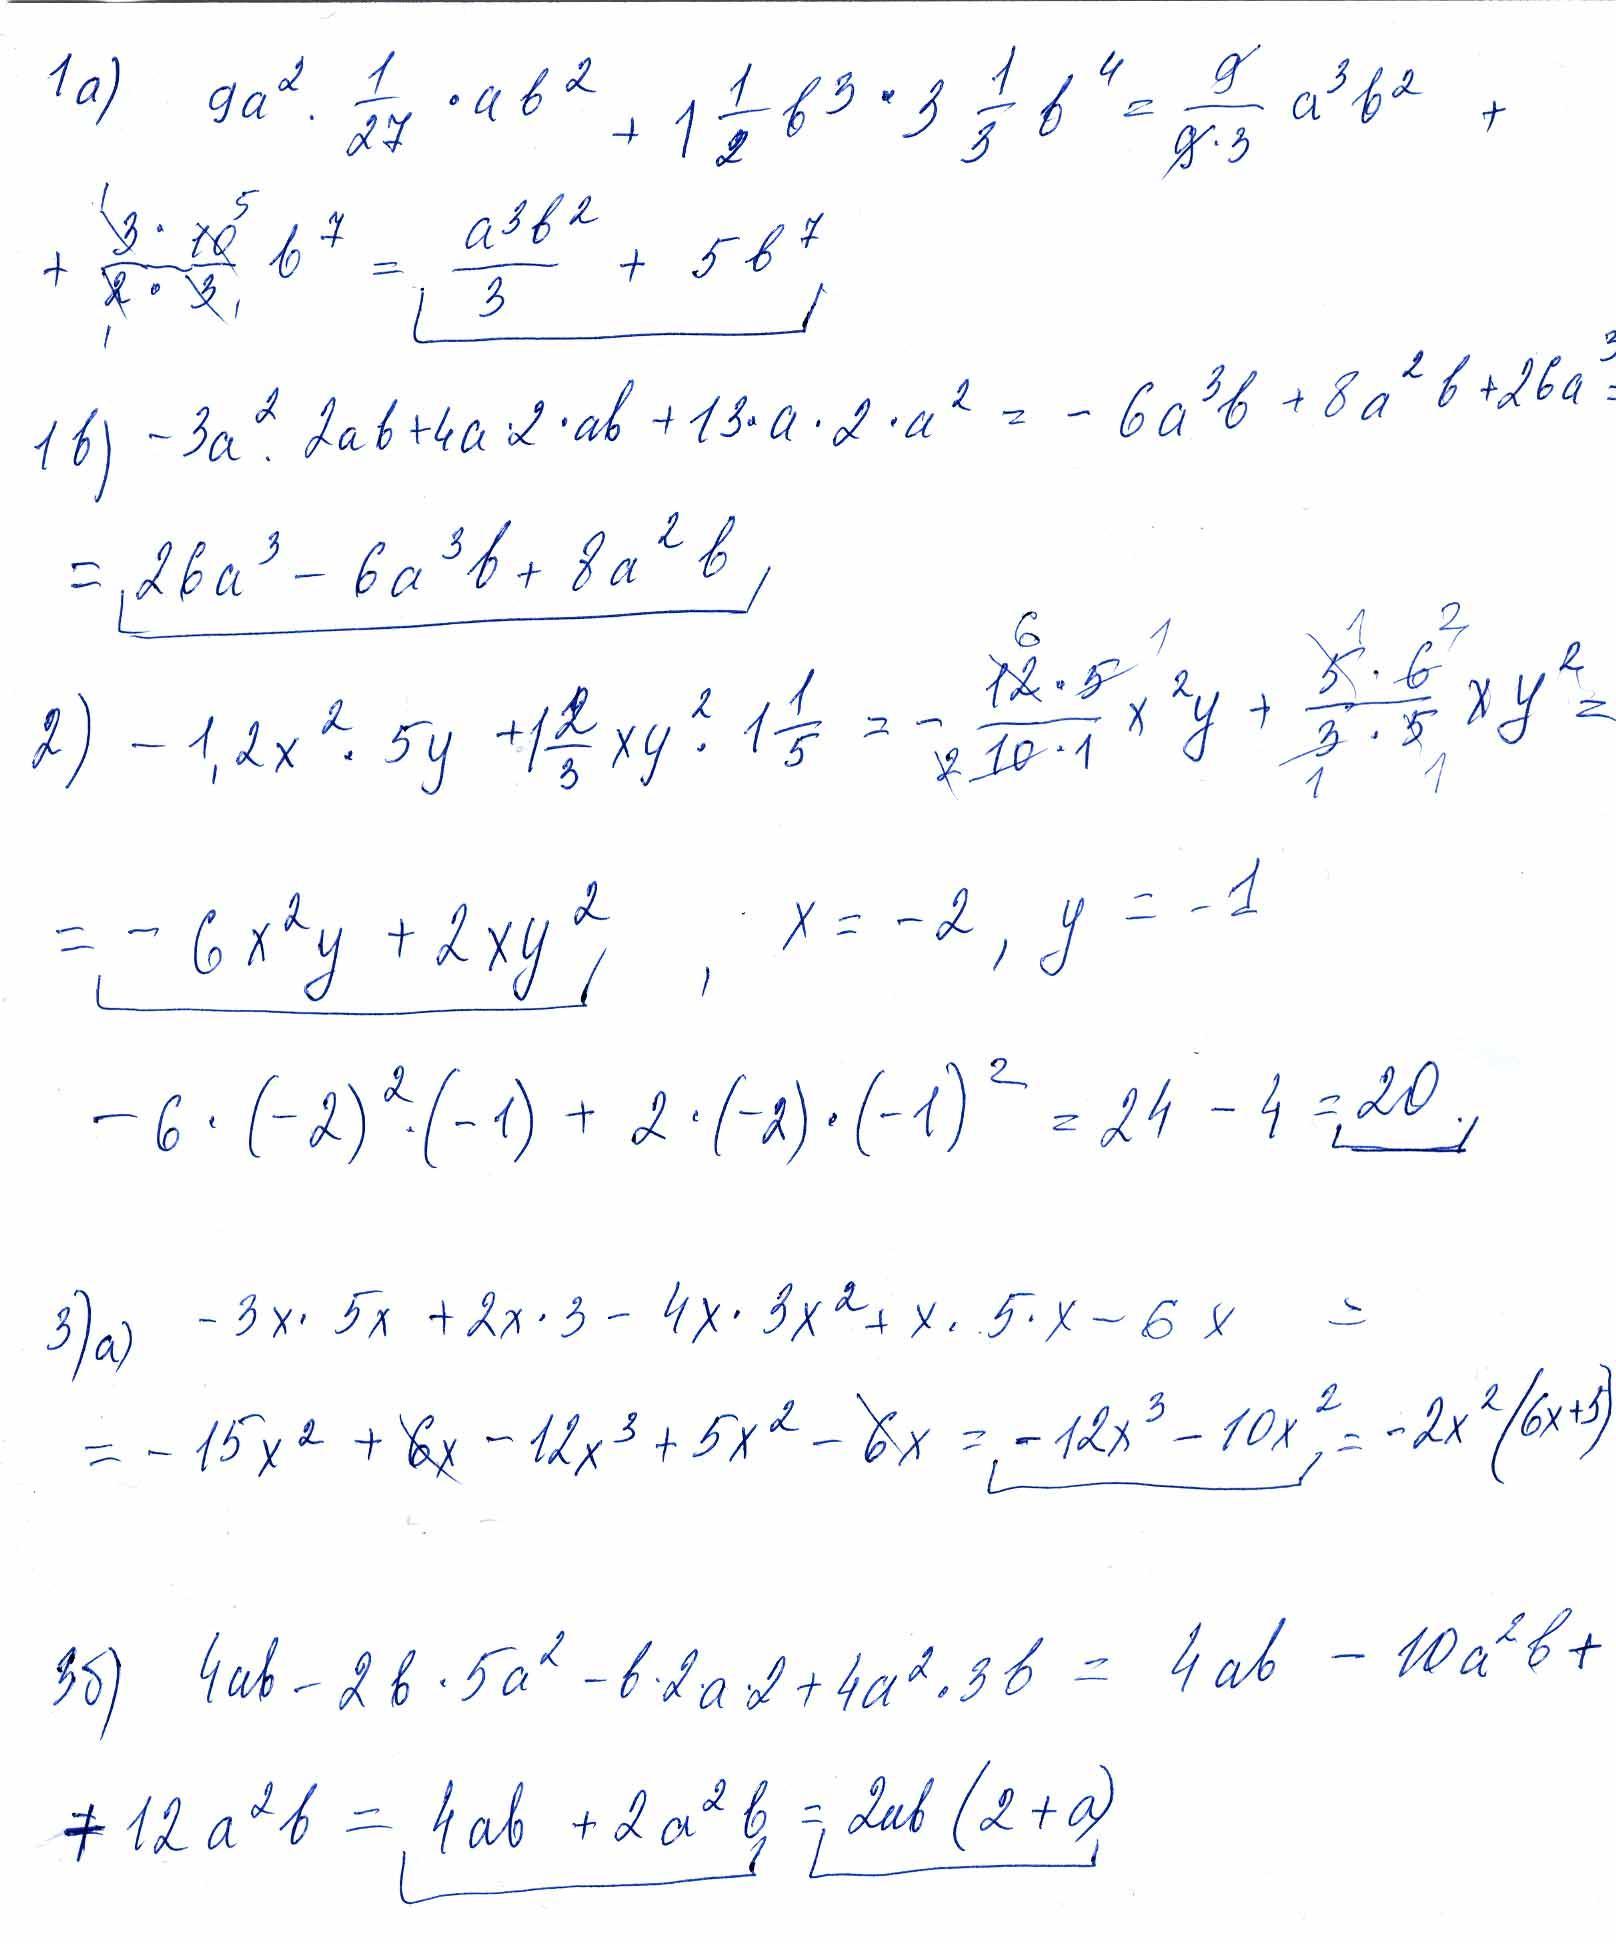 1а) 9a² · 1/27 · ab² + 1 1/2 b³ · 3 1/3 b⁴ = 9/(9·3) a³b² +
+ (3 · 10)/(2 · 3) b⁷ = a³b²/3 + 5b⁷
1в) -3a² · 2ab + 4a · 2 · ab + 13 · a · 2 · a² = - 6a³b + 8a²b + 26a³ =
= 26a³ - 6a³b + 8a²b
2) - 1,2x² · 5y + 1 2/3 xy² · 1 1/5 = - (12 · 5)/(10 · 1) x²y + (5 · 6)/(3 · 5) xy² =
= - 6x²y + 2xy² , x = -2, y = -1
- 6 · (-2)² · (-1) + 2 · (-2) · (-1)² = 24 - 4 = 20.
3) а) - 3x · 5x + 2x · 3 - 4x · 3x² + x · 5 · x - 6x =
= - 15x² + 6x - 12x³ + 5x² - 6x = -12x³ - 10x² = -2x² (6x+5)
3б) 4ab - 2b · 5a² - b · 2 · a · 2 + 4a² · 3b = 4ab - 10a²b +
+ 12a²b = 4ab + 2a²b = 2ab (2 + a)